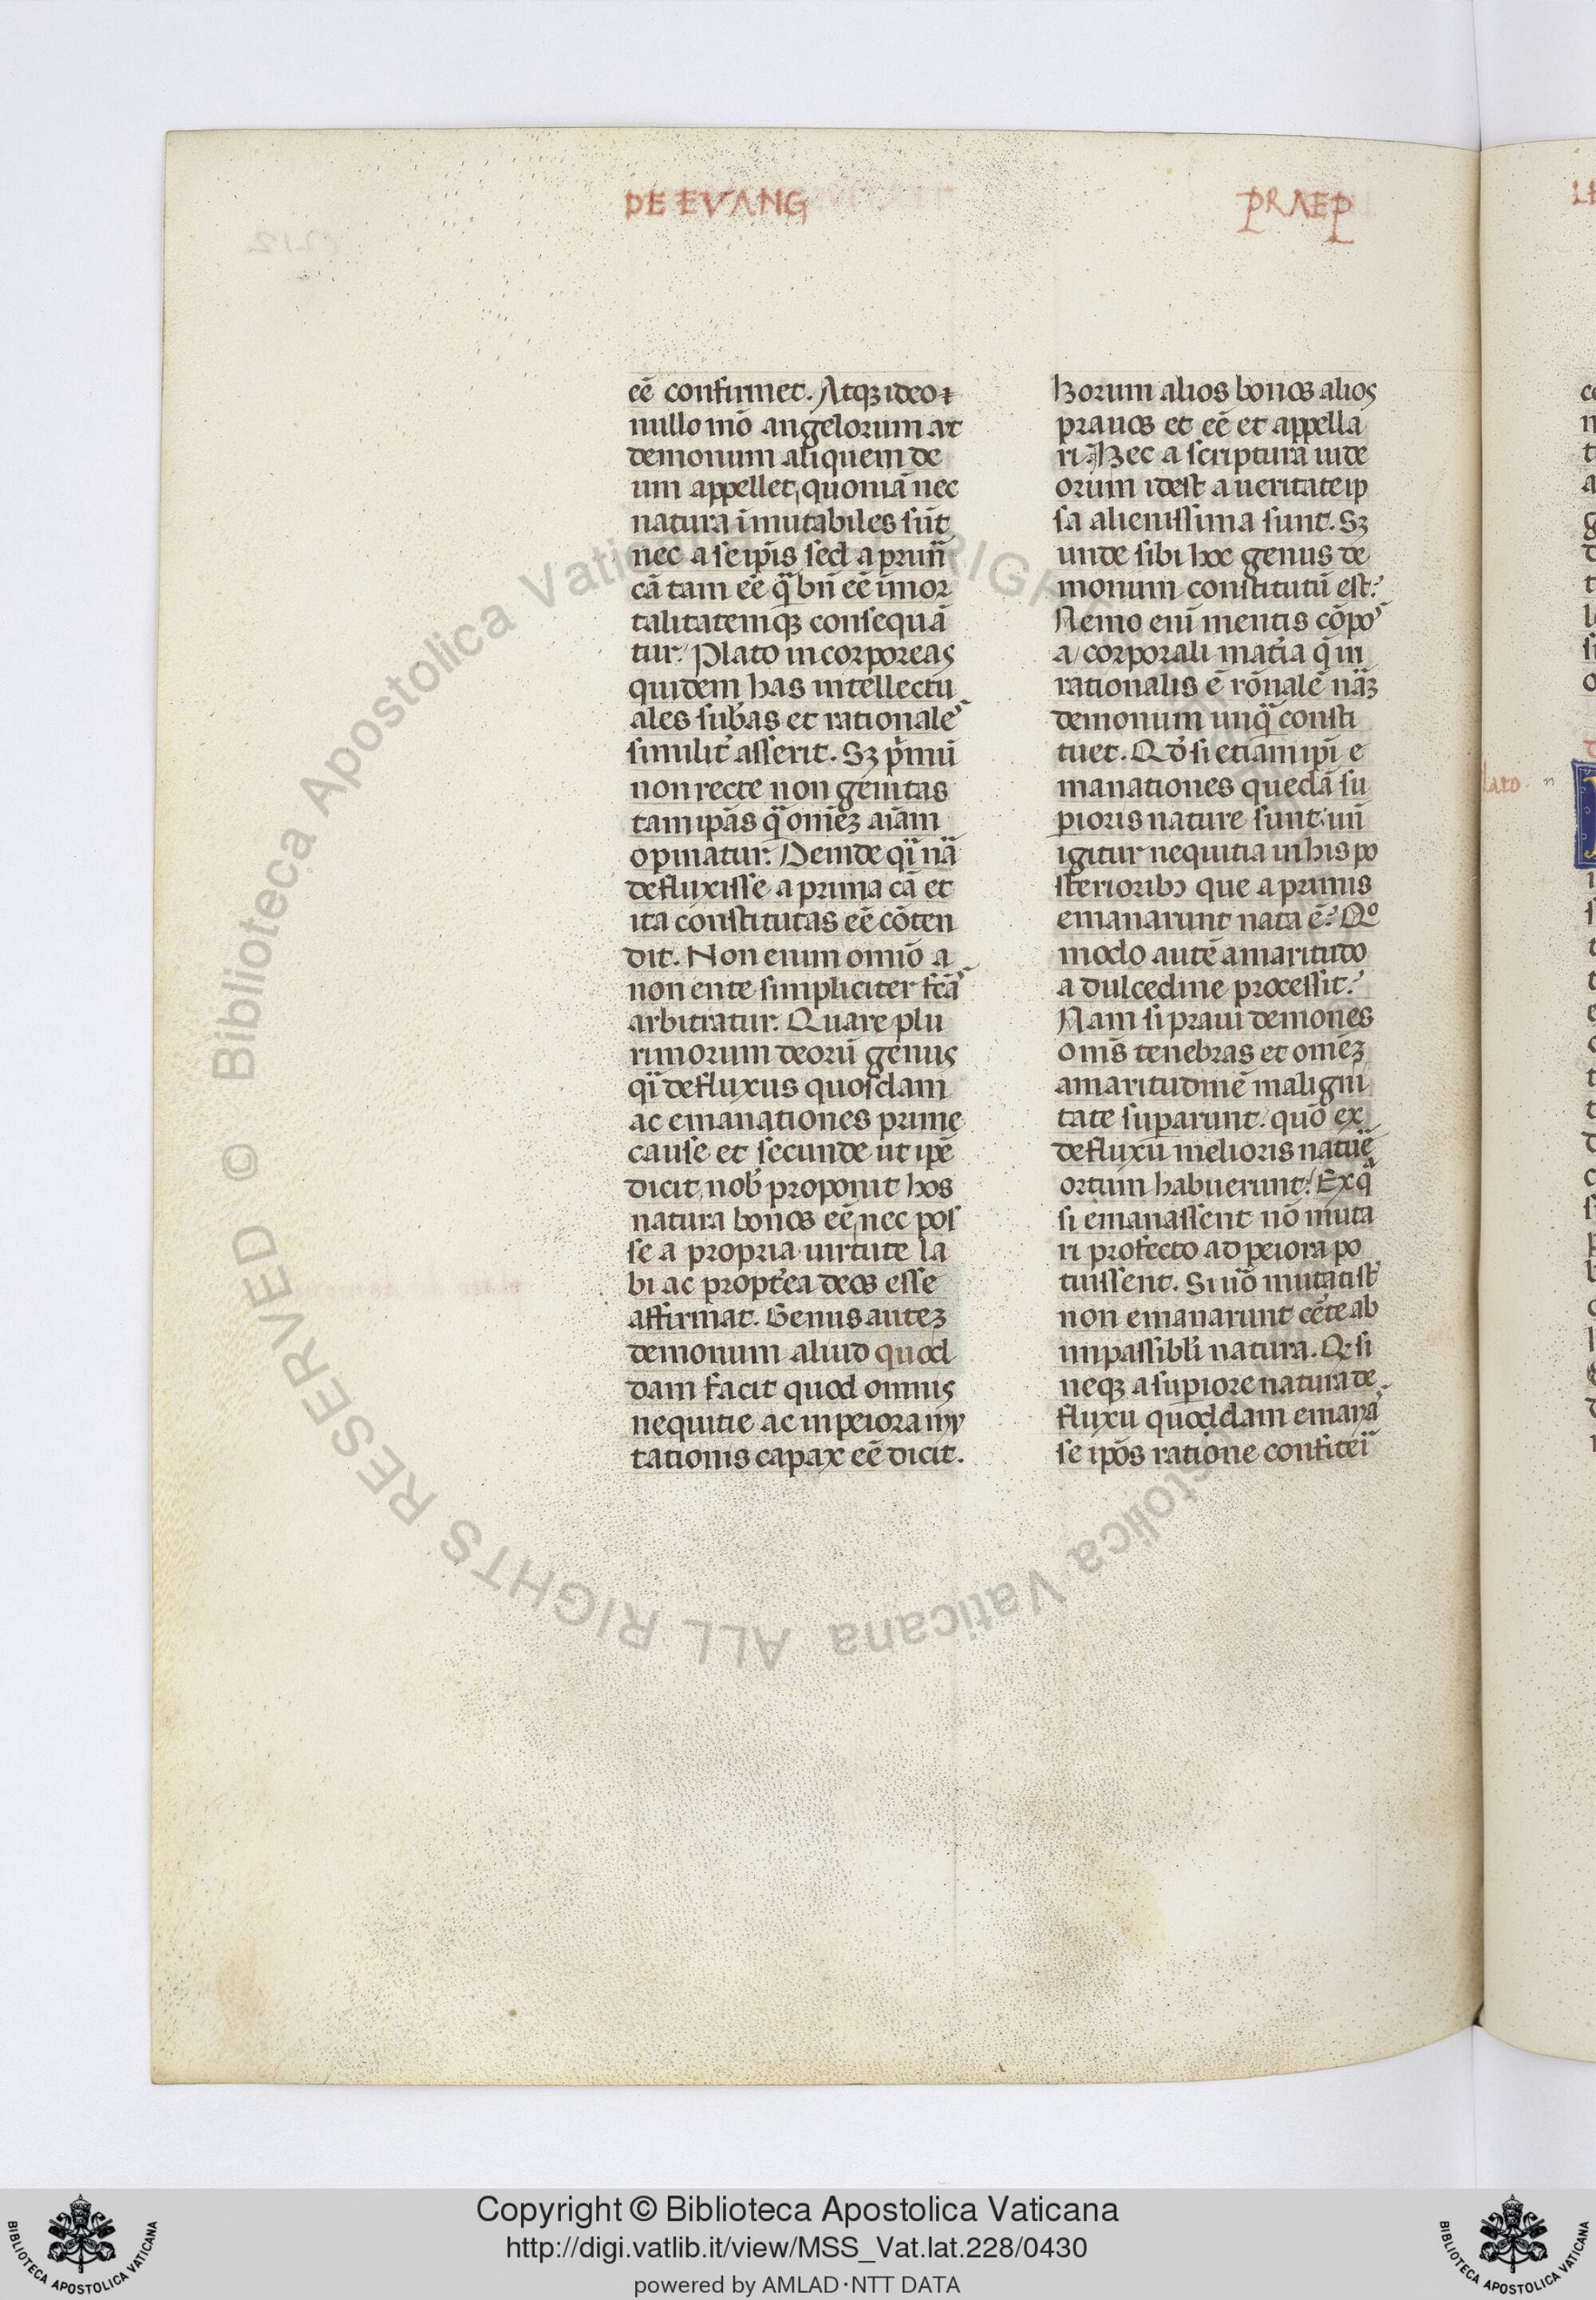 DE EVANG
PRAEP
eē confirmet. Atqꝫ ideo ⁊
nullo mō angelorum aut
demonum aliquem de
um appellet, quoniā nec
natura īmutabiles sūt
nec a se ipīs sed a prim̄
cā tam eē q̄ bn̄ eē īmor
talitatemqꝫ consequā
tur. Plato incorporeas
quidem has intellectu
ales subas et rationale
similit asserit. Sꝫ pmū
non recte non genitas
tam ipās q̄ omēꝫ aīam
opinatur. Deinde qī nā
defluxisse a prima cā et
ita constitutas eē cōten
dit. Non enim omīo a
non ente simpliciter fcā
arbitratur. Quare plu
rimorum deorū genus
qī defluxus quosdam
ac emanationes prime
cause et secunde ut ipē
dicit, nob proponit hos
natura bonos eē, nec pos
se a propria uirtute la
bi ac proptea deos esse
affirmat. Genus autēꝫ
demonum aliud quod
dam facit quod omnis
nequitie ac in peiora mu
tationis capax eē dicit.
horum alios bonos alios
prauos et eē et appella
ri. Hec a scriptura iude
orum idest a ueritate ip
sa alienissima sunt. Sꝫ
unde sibi hoc genus de
monum constitutū est?
Nemo enī mentis cōpo
a corporali matia q̄ in
rationalis ē rōnalē nāꝫ
demonum unq̄ consti
tuet. Qd si etiam ipī e
manationes quedā su
pioris nature sunt: un̄
igitur nequitia in his po
sterioribꝫ que a primis
emanarunt nata ē? Qo
modo autē amaritudo
a dulcedine processit?
Nam si praui demones
omīs tenebras et omēꝫ
amaritudinē maligni
tate suparunt. quō ex
defluxu melioris natue
ortum habuerunt? Ex q
si emanassent nō muta
ri profecto ad peiora po
tuissent. Si uō mutati st
non emanarunt cēte ab
impassibli natura. Q si
neqꝫ a supiore natura de
fluxu quoddam emana
se ipōs ratione confitei
Copyright © Biblioteca Apostolica Vaticana
http://digi.vatlib.it/view/MSS_Vat.lat.228/0430
powered by AMLAD·NTT DATA
BIBLIOTECA APOSTOLICA VATICANA
BIBLIOTECA APOSTOLICA VATICANA